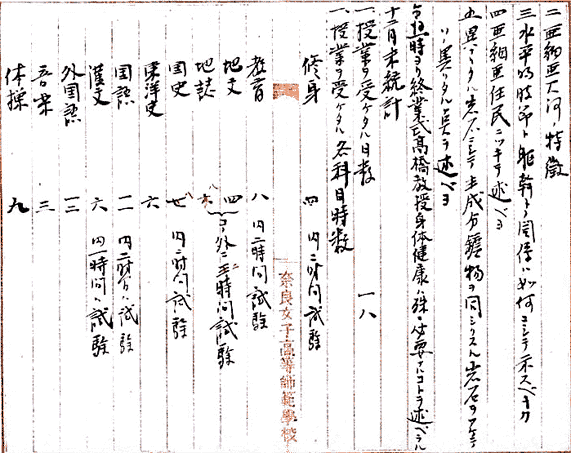 二 亜細亜大河ノ特徴
三 水平的時節ト躯幹トノ関係ハ如何ニシテ示スベキカ
四 亜細亜住民ニツキテ述ベヨ
五 異リタル岩石ニシテ主成分鑛物ヲ同ジウスル岩石ヲアゲ
ソノ異リタル点ヲ述ベヨ
午后一時ヨリ終業式高橋教授身体健康ハ殊ニ必要ナルコトヲ述ベラル
十二月末統計
一、授業ヲ受ケタル日数 一八
一、授業ヲ受ケタル各科目時数
修身 四 内二時間試験
教育 八 内二時間試験
地文 四
地誌 八 外ニ五時間試験
国史 七 内二時間試験
東洋史 六
国語 一二 内二時間試験
漢文 六 内一時間試験
外国語 三
音楽 三
体操 九
奈良女子高等師範學校